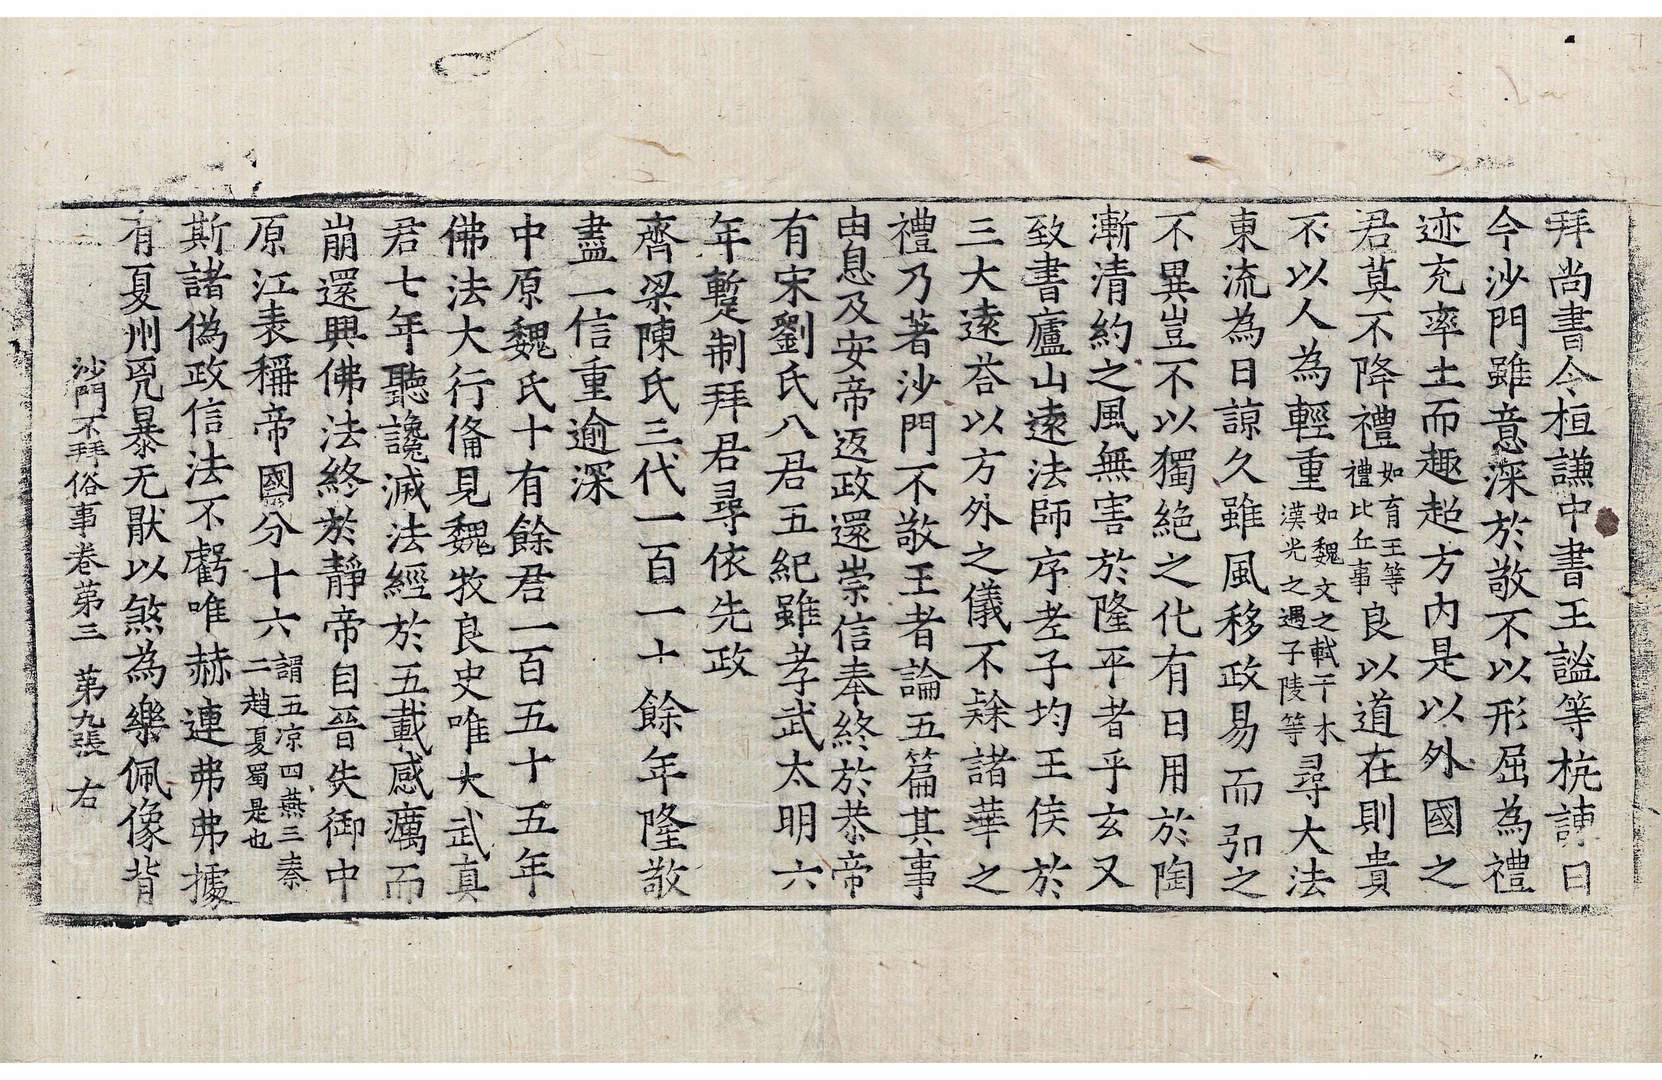 拜尚書令桓謙中書王謐等抗諫曰
今沙門雖意深於敬不以形屈為禮
迹充率土而趣超方內是以外國之
君莫不降禮如育王等禮比丘事良以道在則貴
不以人為輕重如魏文之軾干木漢光之遇子陵等尋大法
東流為日諒久雖風移政易而弘之
不異豈不以獨絕之化有日用於陶
漸清約之風無害於隆平者乎玄又
致書廬山遠法師序老子均王侯於
三大遠荅以方外之儀不隸諸華之
禮乃著沙門不敬王者論五篇其事
由息及安帝返政還崇信奉終於恭帝
有宋劉氏八君五紀雖孝武太明六
年暫制拜君尋依先政
齊梁陳氏三代一百一十餘年隆敬
盡一信重逾深
中原魏氏十有餘君一百五十五年
佛法大行俻見魏牧良史唯大武真
君七年聽讒滅法經於五載感癘而
崩還興佛法終於靜帝自晉失御中
原江表稱帝國分十六謂五凉四燕三秦二趙夏蜀是也
斯諸偽政信法不虧唯赫連弗弗據
有夏州兇暴无猒以煞為樂佩像背
沙門不拜俗事卷第三　第九張　右